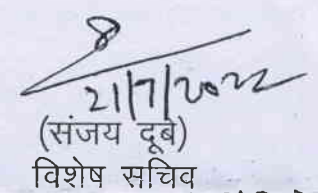 21/7/2022
(संजय दूबे)
विशेष सचिव